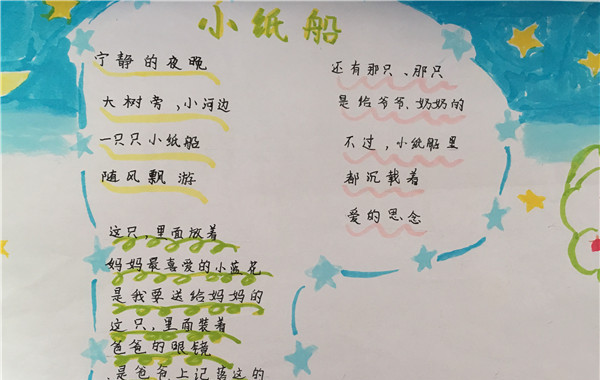 小纸船
宁静的夜晚
大树旁，小河边
一只只小纸船
随风飘游
这只，里面放着
妈妈最喜爱的小蓝花
是我要送给妈妈的
这只，里面装着
爸爸的眼镜
是爸爸上记落这的
还有那只、那只
是给爷爷、奶奶的
不过，小纸船里
都沉载着
爱的思念